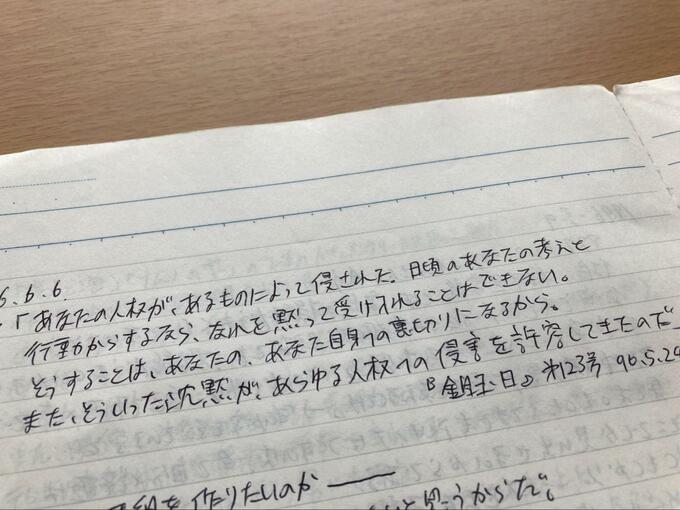 6.6.6.
・「あなたの人权が、あるものによって侵された。日頃のあなたの考えと
行動からするなら、なれを黙って受け入れることはできない。
そうすることは、あなたの、あなた自身への裏切りになるから。
また、そういった沈黙が、あらゆる人权への侵害を許容してきたのだ
『金曜日』 第123号 96.5.24
を作りたいのか ――
と思うからだ。